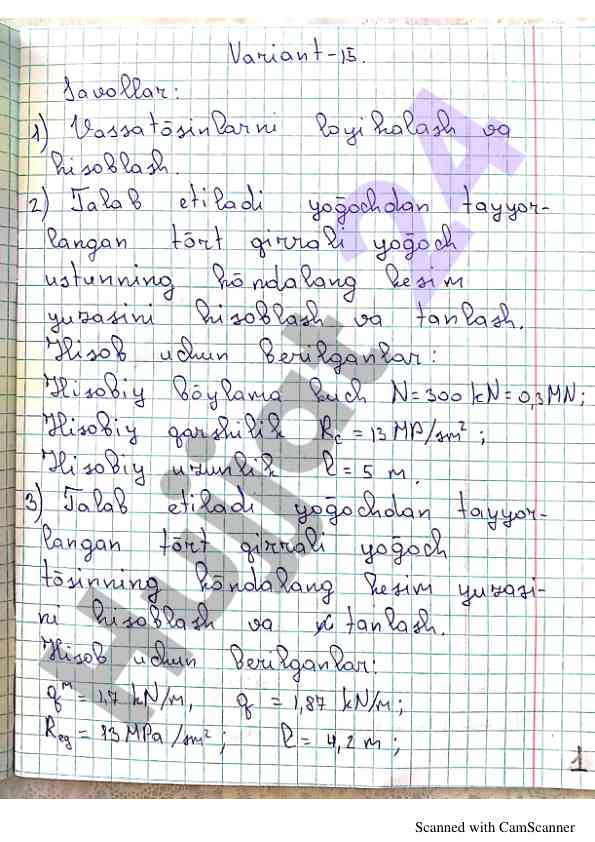 Variant-15.
Savollar:
1) Vassatōsinlarni loyihalash va
hisoblash.
2) Talab etiladi yoḡochdan tayyor-
langan tōrt qirrali yoḡoch
ustunning kōndalang kesim
yuzasini hisoblash va tanlash.
Hisob uchun berilganlar:
Hisobiy bōylama kuch N=300 kN=0,3MN;
Hisobiy qarshilik Rc=13 MP/sm²;
Hisobiy uzunlik l=5 m.
3) Talab etiladi yoḡochdan tayyor-
langan tōrt qirrali yoḡoch
tōsinning kōndalang kesim yuzasi-
ni hisoblash va tanlash.
Hisob uchun berilganlar:
qᵐ=1,7 kN/m, q=1,87 kN/m;
Reg=13 MPa/sm²; l=4,2 m;
1
Hujjat 24
Scanned with CamScanner